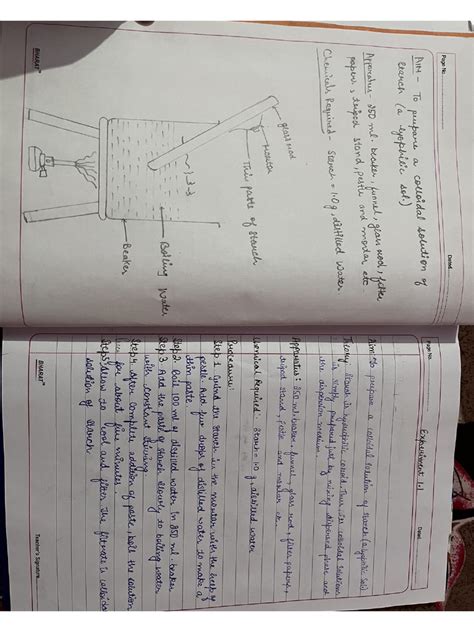 Page No.
Date:
AIM - To prepare a colloidal solution of
starch (a lyophilic sol.)
Apparatus - 250 ml. beaker, funnel, glass rod, filter
papers, tripod stand, pestle and mortar etc
Chemicals Required - Starch = 1.0 g, distilled water.
glass rod
Thin paste of starch
Boiling Water
Beaker
BHARAT
Page No.
Date:
Experiment 1.1
Aim: To prepare a colloidal solution of starch (lyophilic sol)
Theory: Starch is lyophilic colloid. Thus, its colloidal solution
is simply prepared just by mixing dispersed phase and
the dispersion medium.
Apparatus: 250 ml beaker, funnel, glass rod, filter papers,
tripod stand, pestle and mortar etc.
Chemical Required: Starch = 1.0 g, distilled water
Procedure:
Step 1 Grind the starch in the mortar with the help of
pestle. Add few drops of distilled water to make a
thin paste
Step 2 Boil 100 ml of distilled water in 250 ml beaker
Step 3 Add the paste of starch slowly to boiling water
with constant stirring
Step 4 After complete addition of paste, boil the solution
for about five minutes
Step 5 Allow to cool and filter. The filtrate is colloidal
solution of starch
BHARAT
Teacher's Signature